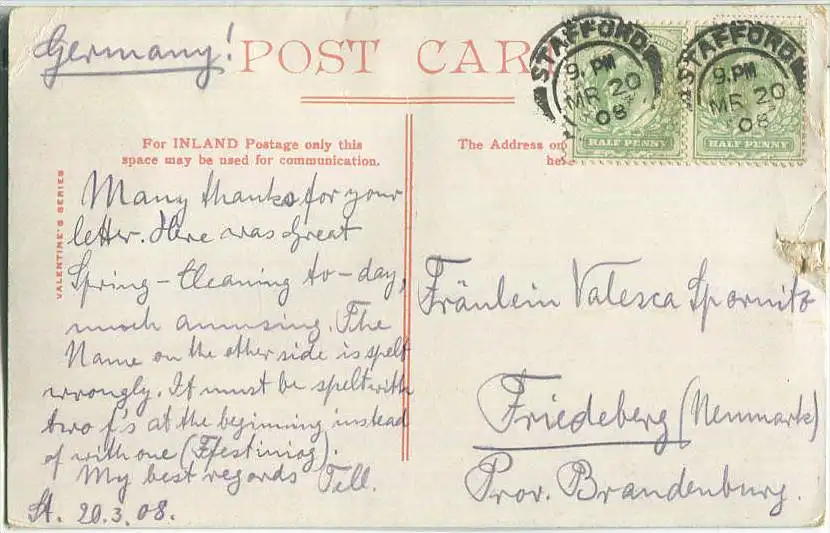 Germany!
POST CAR
STAFFORD
9. PM
MR 20
08
STAFFORD
9. PM
MR 20
08
HALF PENNY
HALF PENNY
For INLAND Postage only this
space may be used for communication.
The Address on
here
VALENTINE'S SERIES
Many thanks for your
letter. Here was great
Spring-Cleaning to-day,
much amusing. The
Name on the other side is spelt
wrongly. It must be spelt with
two f's at the beginning instead
of with one (Ffestiniog).
My best regards Tell.
St. 20.3.08.
Fräulein Valesca Spornitz
Friedeberg (Neumark)
Prov. Brandenburg.